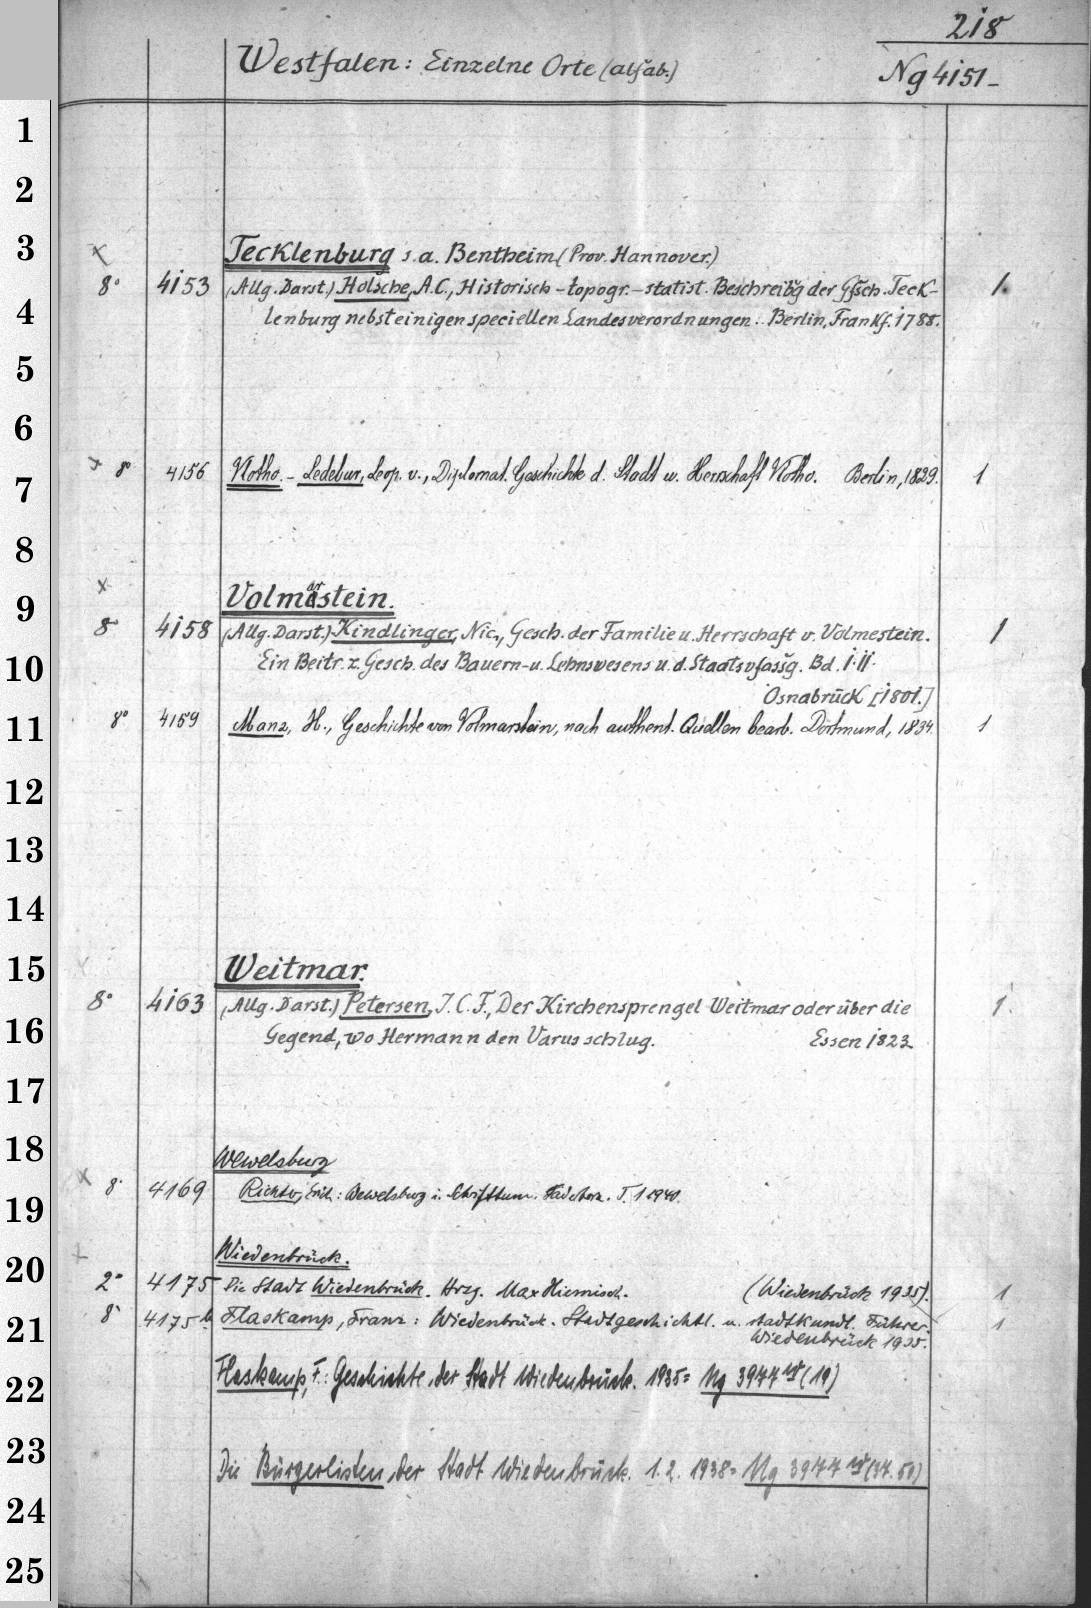 218
Westfalen: Einzelne Orte (alfab.)
Ng 4151-
Tecklenburg s. a. Bentheim (Prov. Hannover.)
8° 4153 (Allg. Darst.) Holsche, A.C., Historisch-topogr.-statist. Beschreibg der Gfsch. Teck- 1.
lenburg nebst einigen speciellen Landesverordnungen. Berlin, Frankf. 1788.
8° 4156 Vlotho. - Ledebur, Leop. v., Diplomat. Geschichte d. Stadt u. Herrschaft Vlotho. Berlin, 1829. 1
Volmarstein.
8° 4158 (Allg. Darst.) Kindlinger, Nic., Gesch. der Familie u. Herrschaft v. Volmestein. 1
Ein Beitr. z. Gesch. des Bauern- u. Lehnswesens u. d. Staatsvfassg. Bd. I. II.
Osnabrück [1801.]
8° 4159 Manz, H., Geschichte von Volmarstein, nach authent. Quellen bearb. Dortmund, 1834. 1
Weitmar.
8° 4163 (Allg. Darst.) Petersen, J. C. F., Der Kirchensprengel Weitmar oder über die 1.
Gegend, wo Hermann den Varus schlug. Essen 1823
Wewelsburg
8° 4169 Richter, Erich: Wewelsburg i. Schrifttum. T. 1 1940.
Wiedenbrück.
2° 4175 Die Stadt Wiedenbrück. Hrzg. Max Hiemisch. (Wiedenbrück 1935). 1
8° 4175b Flaskamp, Franz: Wiedenbrück. Stadtgeschichtl. u. stadtkundl. Führer. 1
Wiedenbrück 1935.
Flaskamp, F.: Geschichte der Stadt Wiedenbrück. 1935 = Ng 3944 (19)
Die Bürgerlisten der Stadt Wiedenbrück. 1. 2. 1938 = Ng 3944 (34. 50)
1
2
3
4
5
6
7
8
9
10
11
12
13
14
15
16
17
18
19
20
21
22
23
24
25